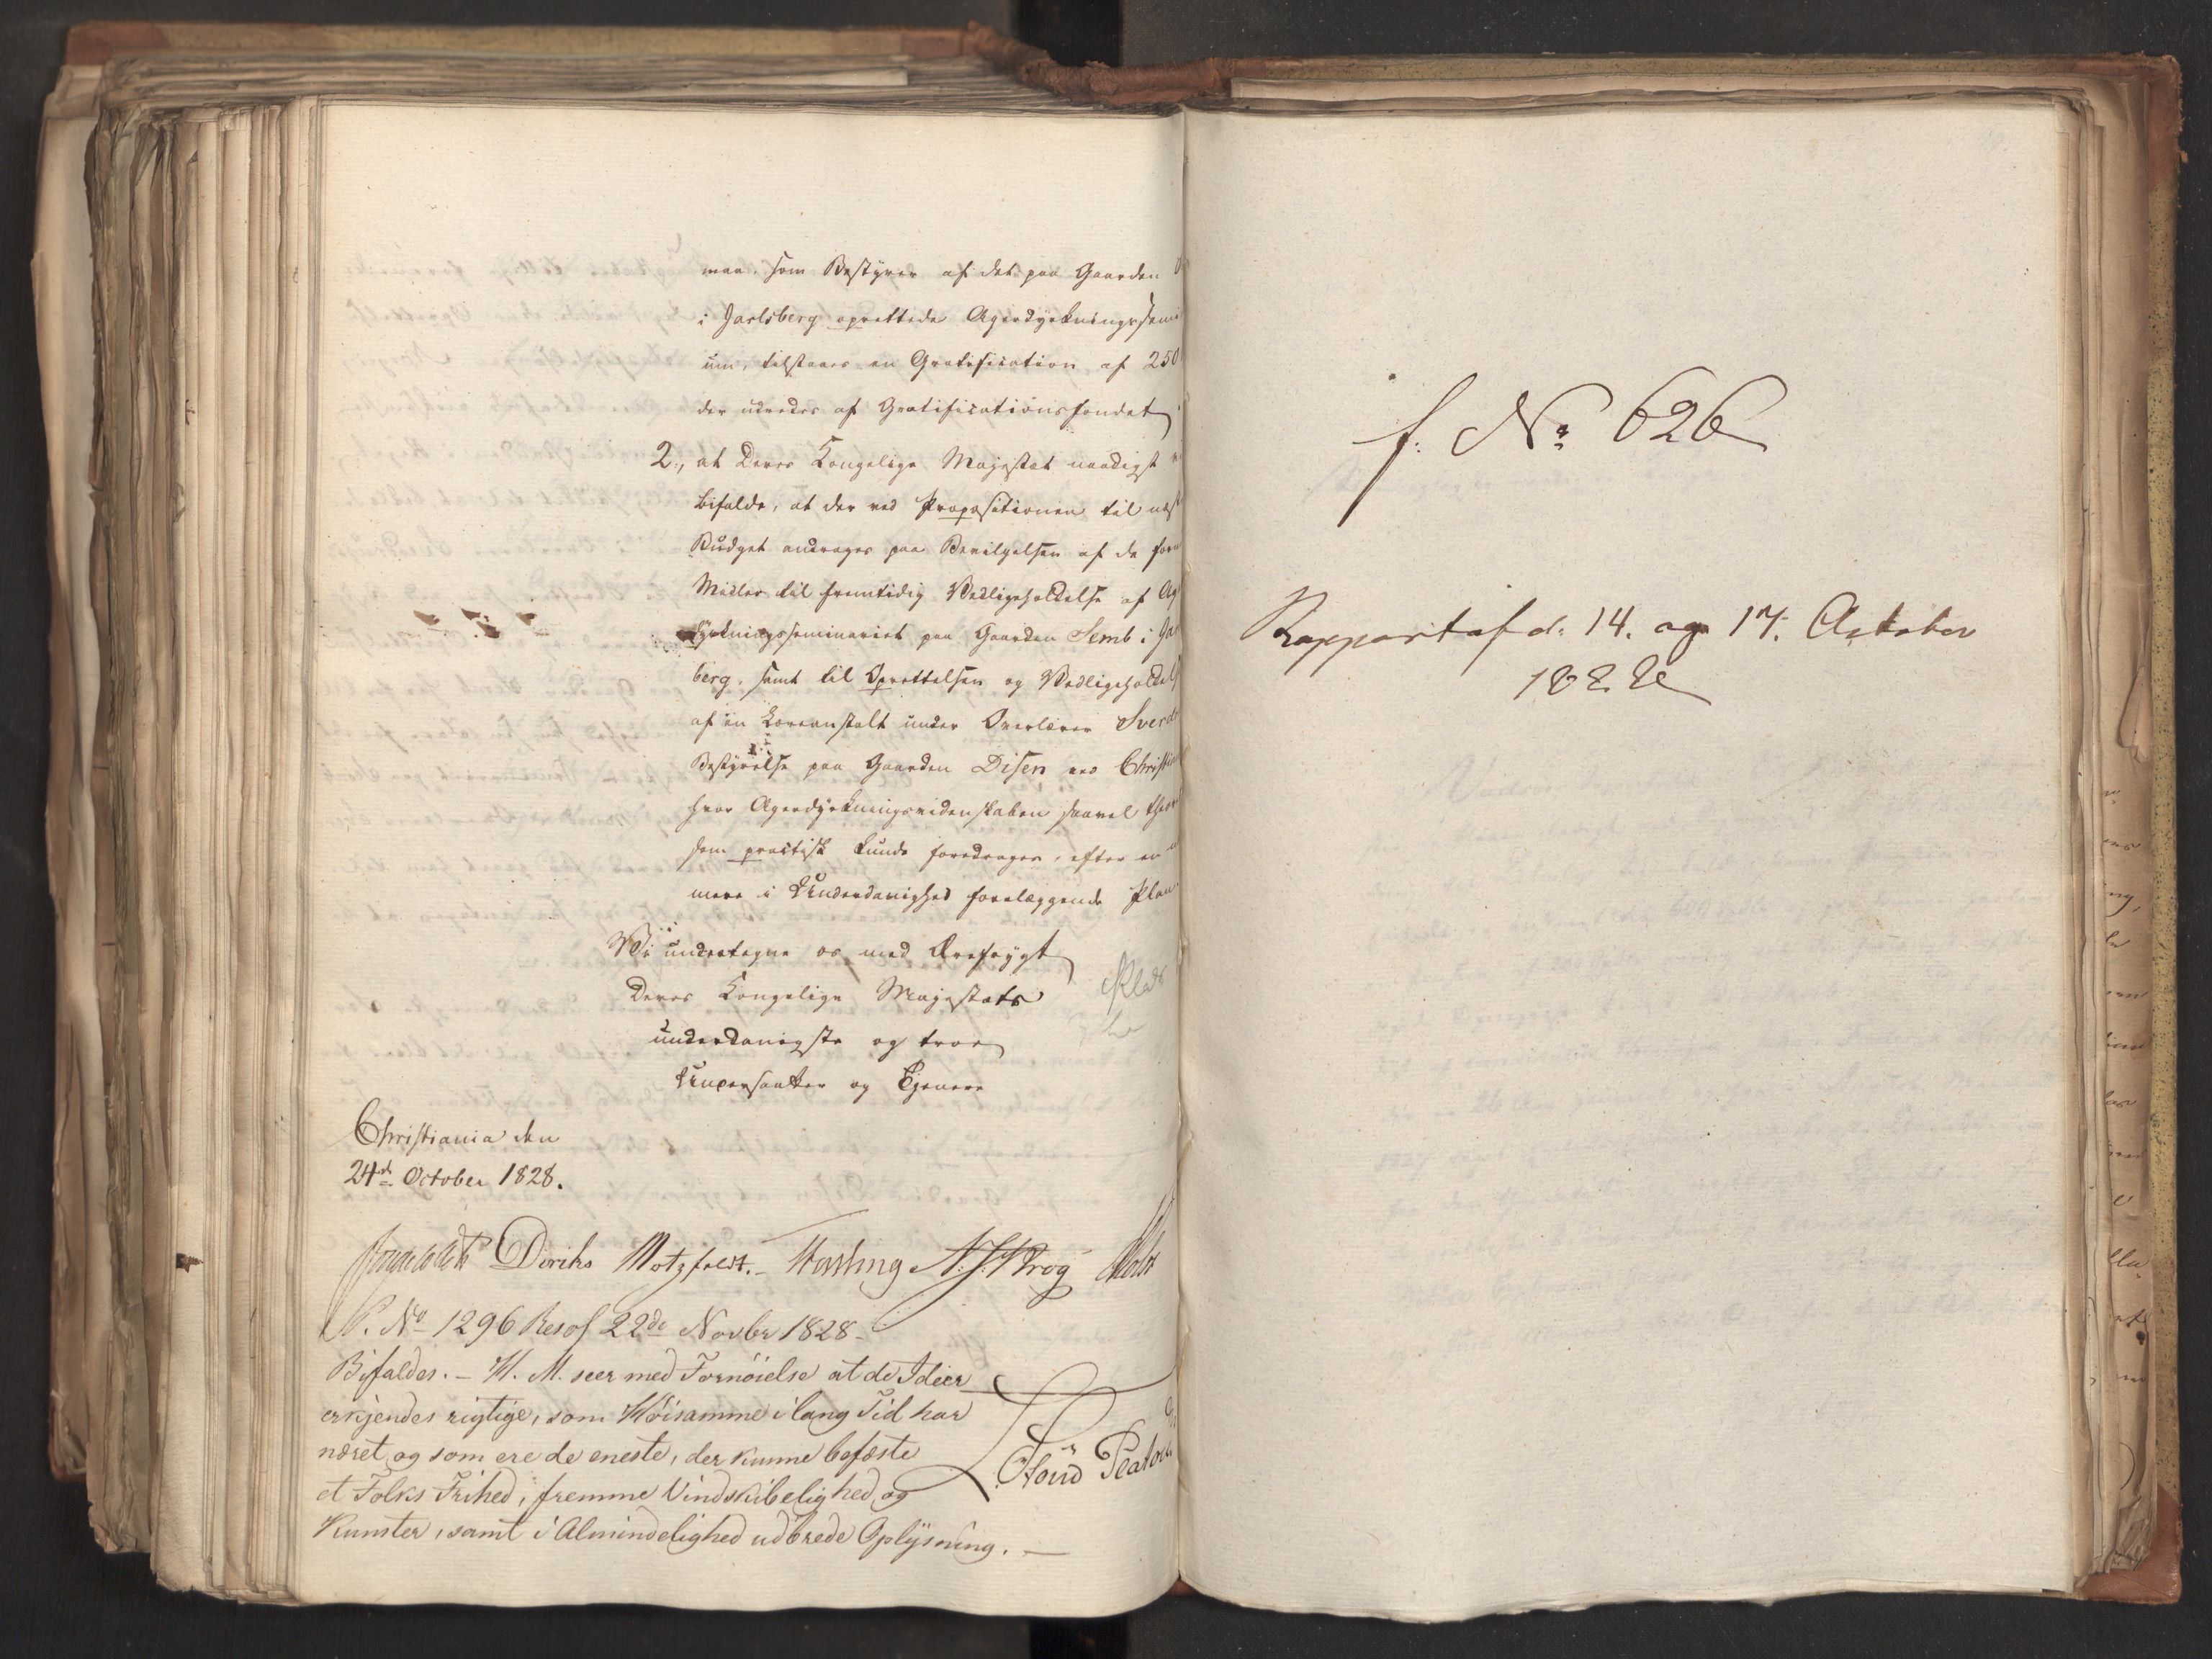 maa, som Bestyrer af det paa Gaarden
i Jarlsberg oprettede Agerdyrkningssemi
um, tilstaaes en Gratification af 250
der udredes af Gratificationsfondet
2., at Deres Kongelige Majestæt naadigst
bifalde, at der ved Propositionen til næst
Budget andrages paa Bevilgelsen af de for
Midler til fremtidig Vedligeholdelse af Ag
dyrkningsseminariet paa Gaarden Semb i Jar
berg, samt til Oprettelsen og Vedligeholdels
af en Læreanstalt under Overlærer Sverd
Bestyrelse paa Gaarden Disen ved Christia
hvor Agerdyrkningsvidenskaben saavel theor
som practisk kunde foredrages, efter en
mere i Underdanighed forelæggende Plan.
Vi undertegne os med Ærefrygt
Deres Kongelige Majestæts
underdanigste og troe
Undersaatter og Tjenere
Christiania den
24de October 1828.
Diriks Motzfeldt. N. J. Krog Holst
P. No 1296 Resol 22de Novbr 1828-
Bifaldes. - H. M. seer med Fornøielse at de Ideer
erkjendes rigtige, som Høisamme i lang Tid har
næret og som ere de eneste, der kunne befæste
et Folks Frihed, fremme Vindskibelighed og
Kunster, samt i Almindelighed udbrede Oplysning. —
f. No 626
Rapport af d. 14. og 17. October
1828